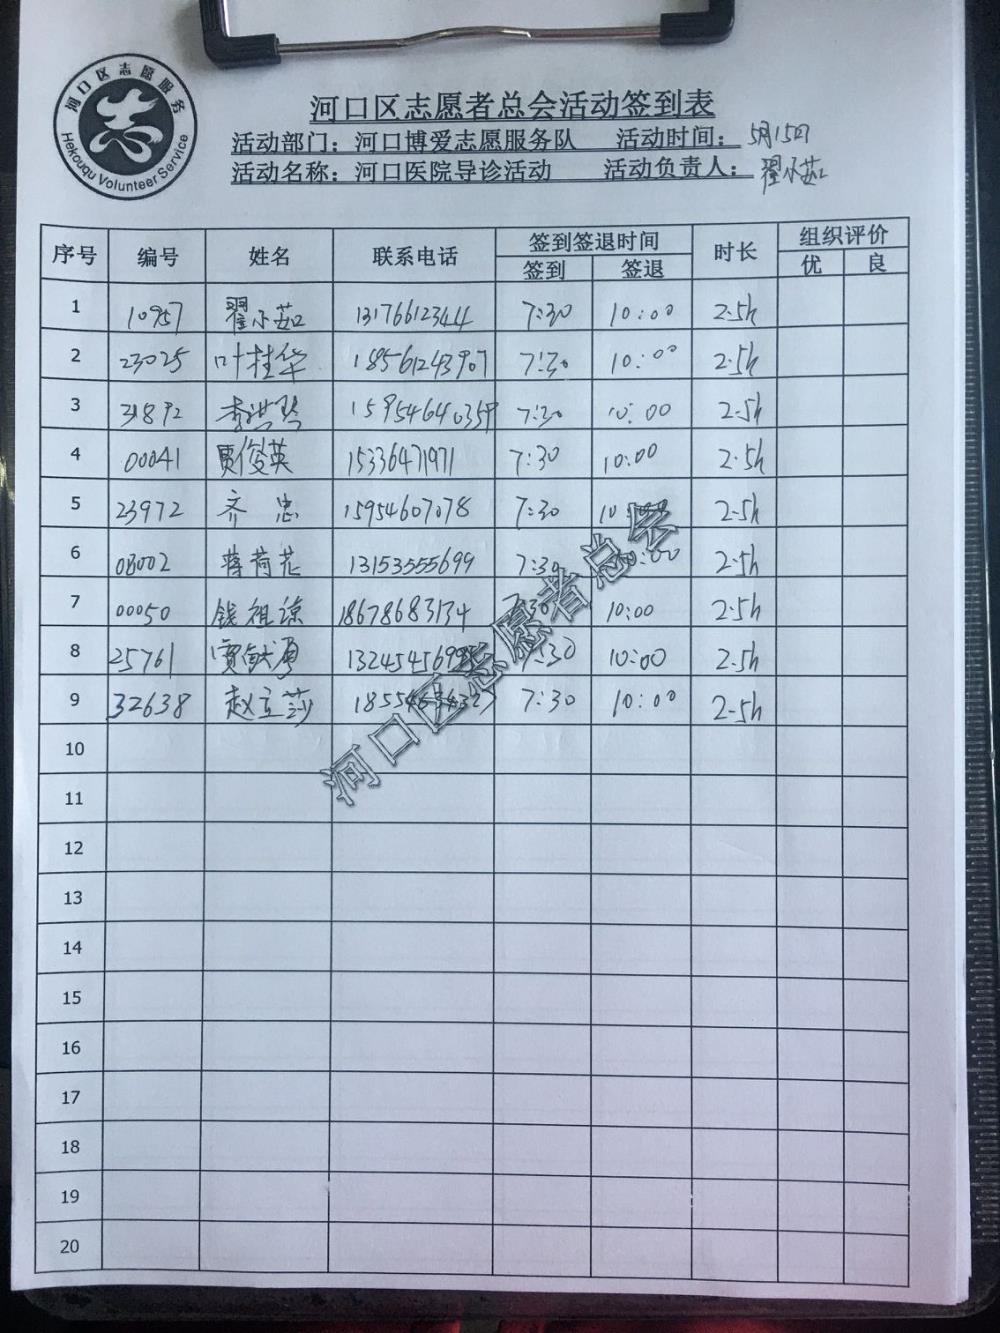 河口区志愿服务
Hekouqu Volunteer Service
河口区志愿者总会活动签到表
活动部门：河口博爱志愿服务队 活动时间：5月15日
活动名称：河口医院导诊活动 活动负责人：翟小茹
序号 编号 姓名 联系电话 签到签退时间 时长 组织评价
签到 签退 优 良
1 10957 翟小茹 13176612344 7:30 10:00 2.5h
2 23025 叶桂华 18561243907 7:30 10:00 2.5h
3 31892 李洪琴 15954640359 7:30 10:00 2.5h
4 00041 贾俊英 15336471971 7:30 10:00 2.5h
5 23972 齐忠 15954607078 7:30 2.5h
6 0B002 蒋荷花 13153555699 7:30 10:00 2.5h
7 00050 钱祖谅 18678683134 7:30 10:00 2.5h
8 25761 贾献勇 7:30 10:00 2.5h
9 32638 赵立莎 7:30 10:00 2.5h
10
11
12
13
14
15
16
17
18
19
20
河口区志愿者总会